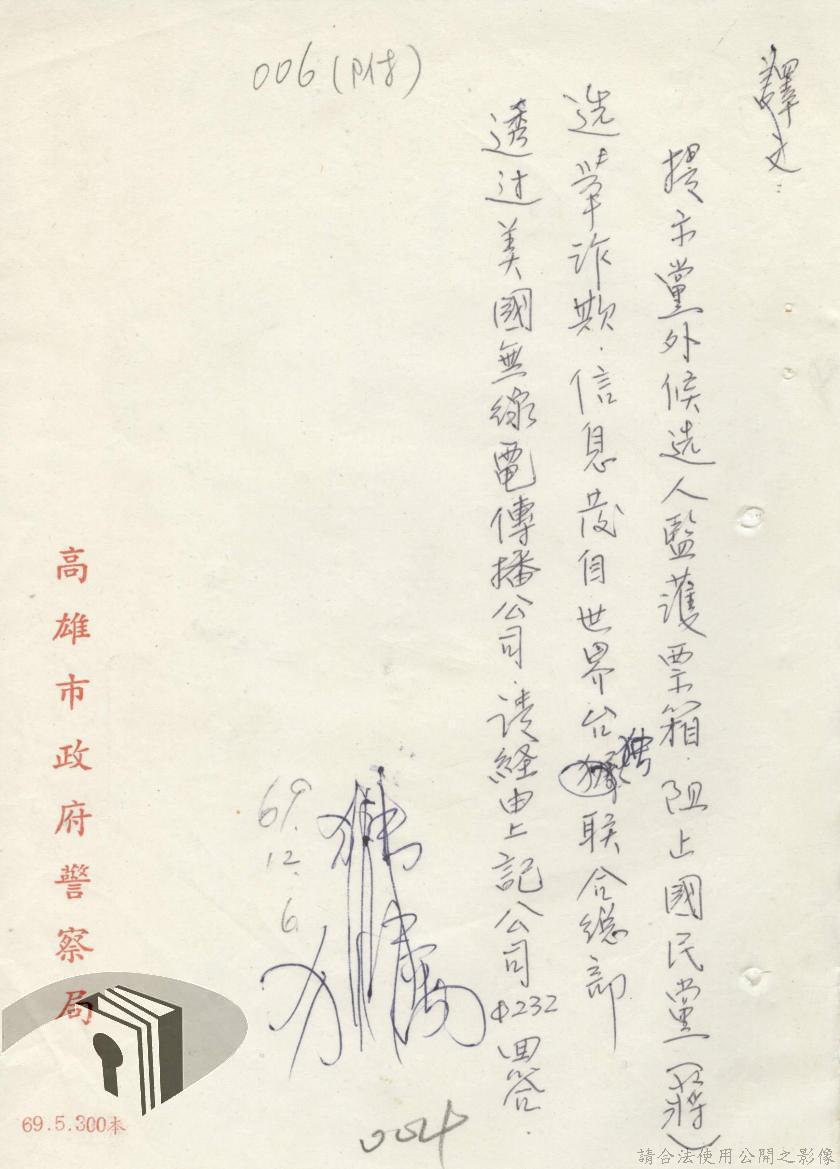 006(附)
譯文:
提示黨外候选人監護票箱.阻止國民黨(蔣)
选举诈欺.信息发自世界台獨联合總部
透过美國無線電傳播公司.请経由上記公司4232回答.
69.
12.
6.
004
高雄市政府警察局
69.5.300本
請合法使用公開之影像